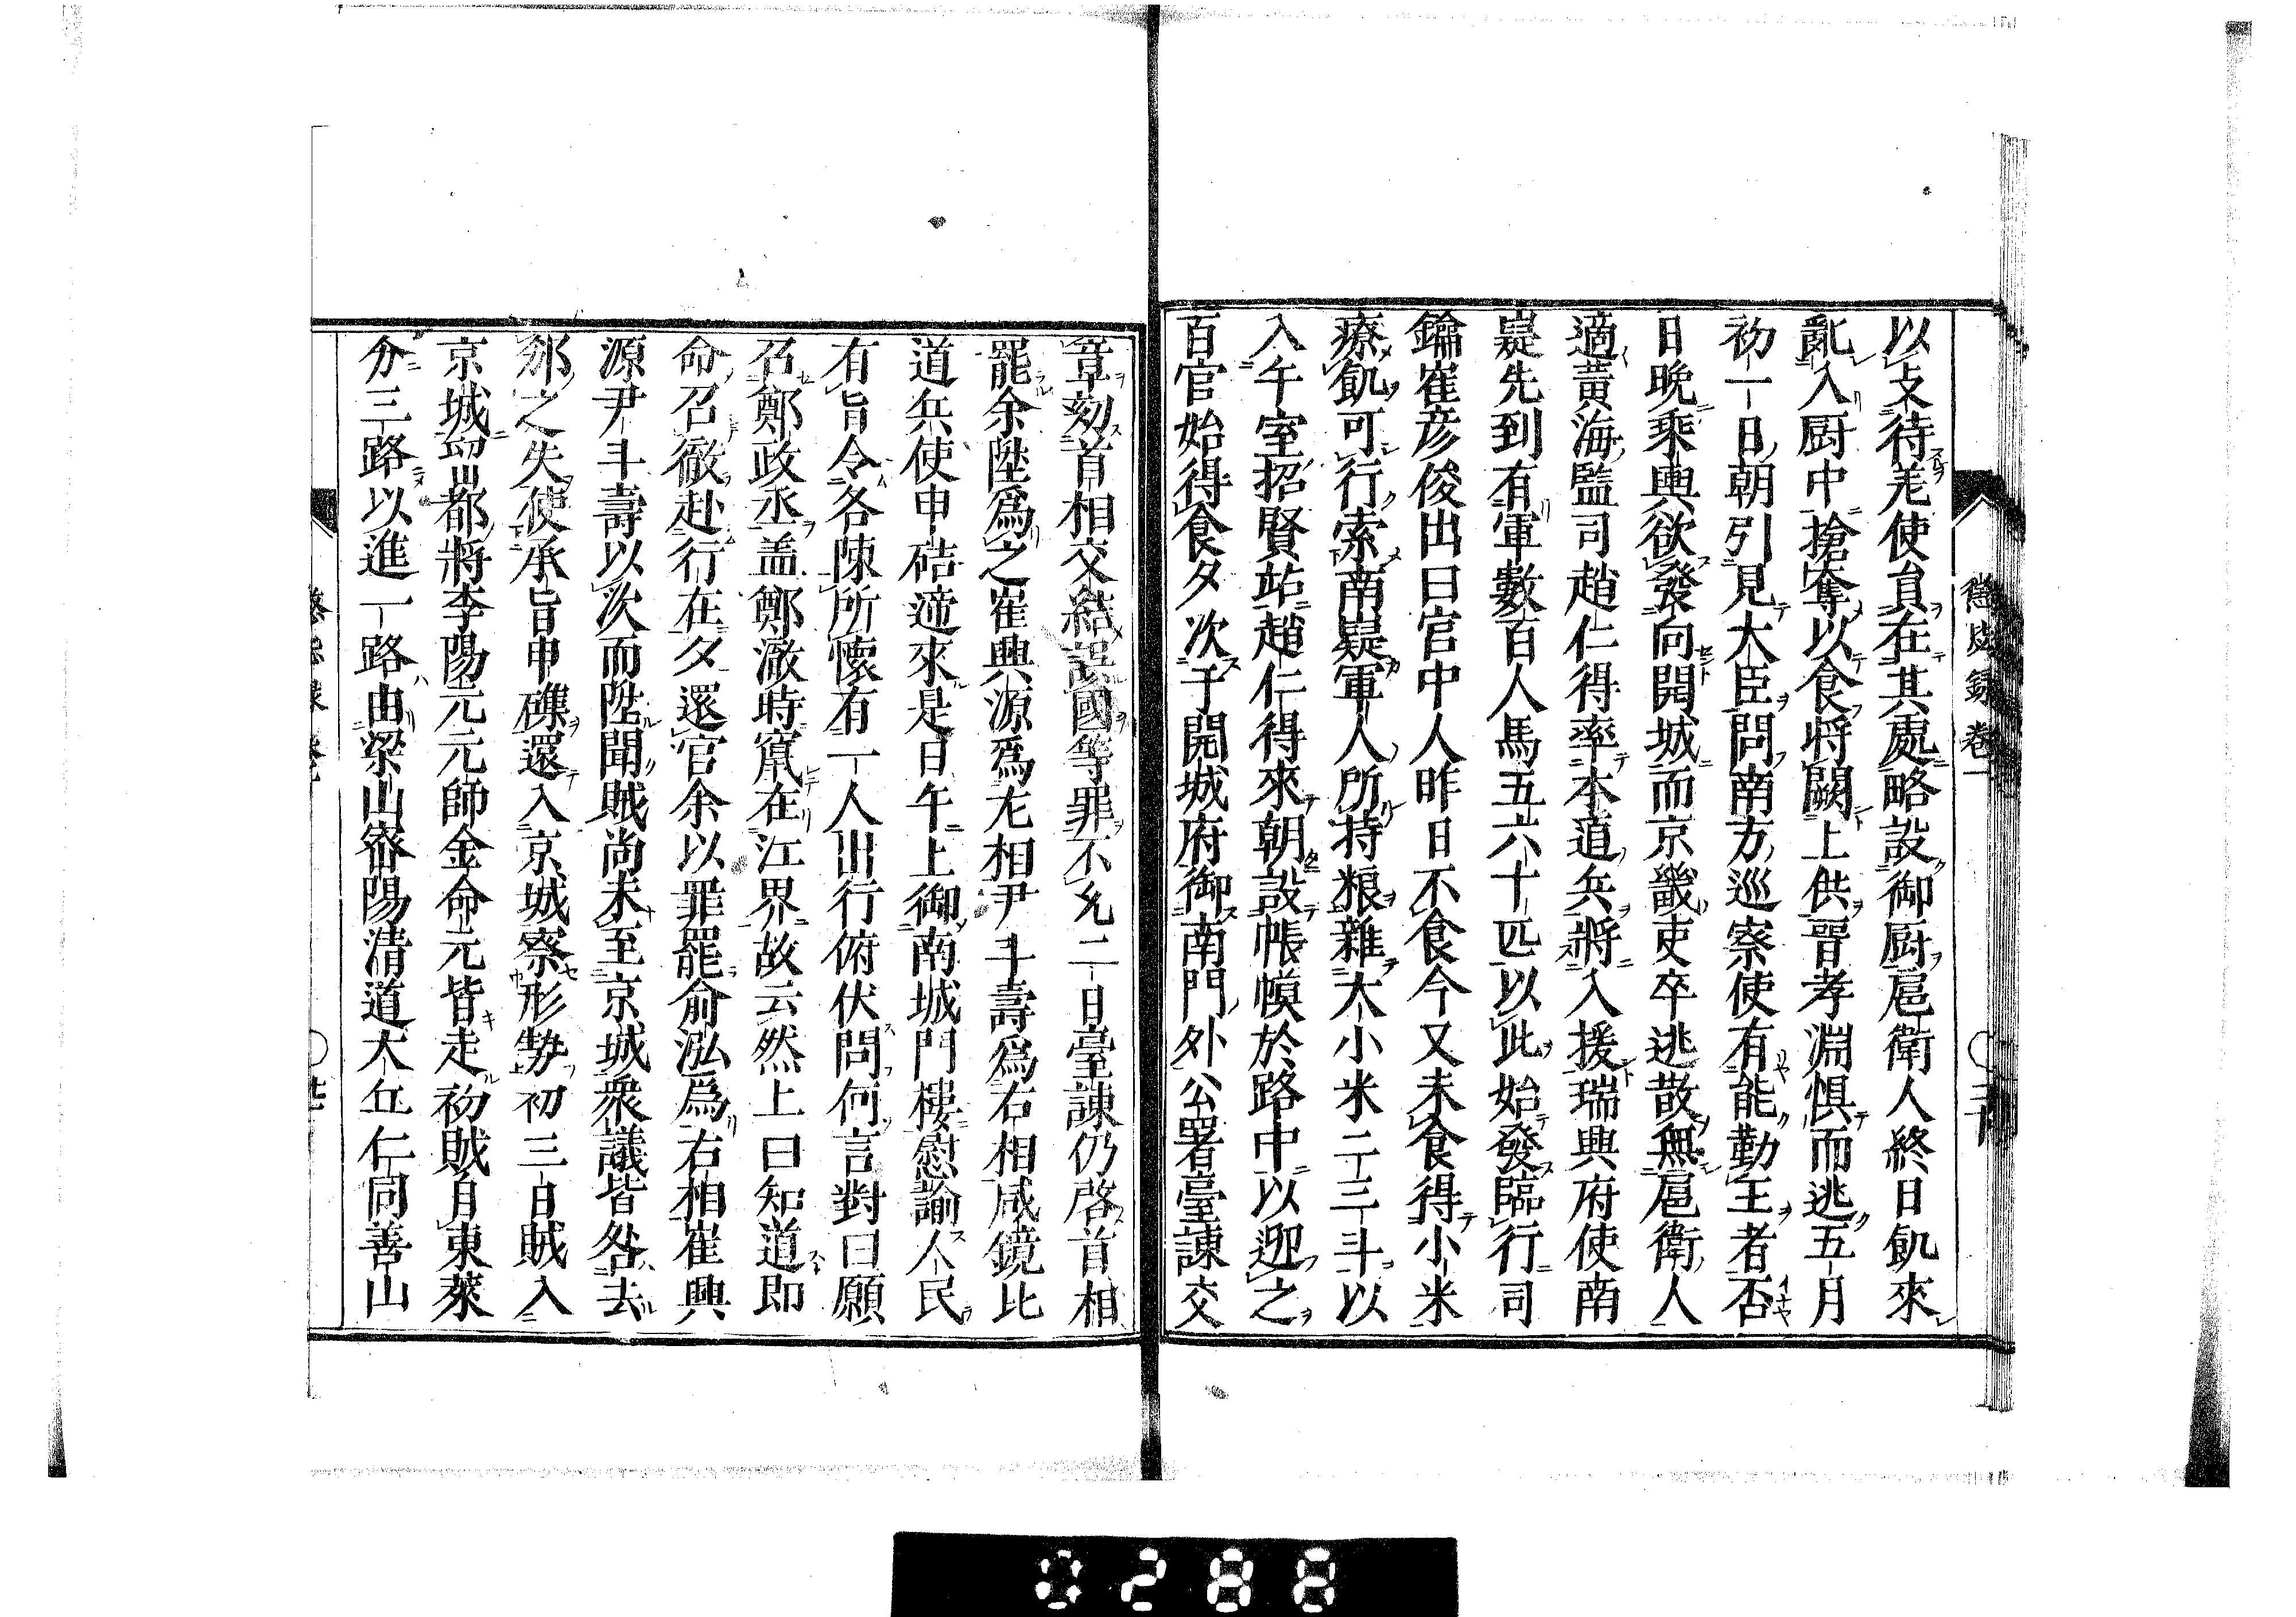 懲毖録 卷一
以支待差使員在其處略設御厨扈衛人終日飢來
亂入厨中搶奪以食將闕上供晉孝淵惧而逃五月
初一日朝引見大臣問南方巡察使有能勤王者否
日晚乘輿欲發向開城而京畿吏卒逃散無扈衛人
適黃海監司趙仁得率本道兵將入援瑞興府使南
嶷先到有軍數百人馬五六十匹以此始發臨行司
鑰崔彦俊出曰宮中人昨日不食今又未食得小米
療飢可行索南嶷軍人所持粮雜大小米二三斗以
入午室招賢站趙仁得來朝設帳幙於路中以迎之
百官始得食夕次于開城府御南門外公署臺諫交
章劾首相交結誤國等罪不允二日臺諫仍啓首相
罷余陞爲之崔興源爲尤相尹斗壽爲右相咸鏡北
道兵使申硈遆來是日午上御南城門樓慰諭人民
有旨令各陳所懷有一人出行俯伏問何言對曰願
召鄭政丞盖鄭澈時竄在江界故云然上曰知道即
命召徹赴行在夕還宮余以罪罷俞泓爲右相崔興
源尹斗壽以次而陞聞賊尚未至京城衆議皆咎去
邠之失使承旨申磼還入京城察形勢初三日賊入
京城留都將李陽元元師金命元皆走初賊自東萊
分三路以進一路由梁山密陽清道大丘仁同善山